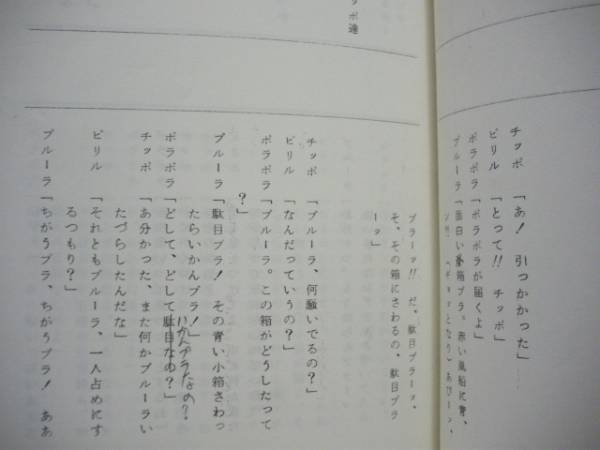 チッポ 「あ！ 引っかかった」
ピリル 「とって!! チッポ」
ポラポラ 「ポラポラが届くよ」
ブルーラ 「面白い箱ブラ。赤い風船に青、
（ギョッとなり）あひーッ、
ブラーッ!! だ、駄目ブラーッ。
そ、その箱にさわるの、駄目ブラ
ーッ」
チッポ 「ブルーラ、何騒いでるの？」
ピリル 「なんだっていうの？」
ポラポラ 「ブルーラ。この箱がどうしたって
？」
ブルーラ 「駄目ブラ！ その青い小箱さわっ
たらいかんブラ！」
ポラポラ 「どして、どして駄目なの？」
いかんブラなの？
チッポ 「あ分かった、また何かブルーラい
たづらしたんだな」
ピリル 「それともブルーラ、一人占めにす
るつもり？」
ブルーラ 「ちがうブラ、ちがうブラ！ ああ
ッポ達